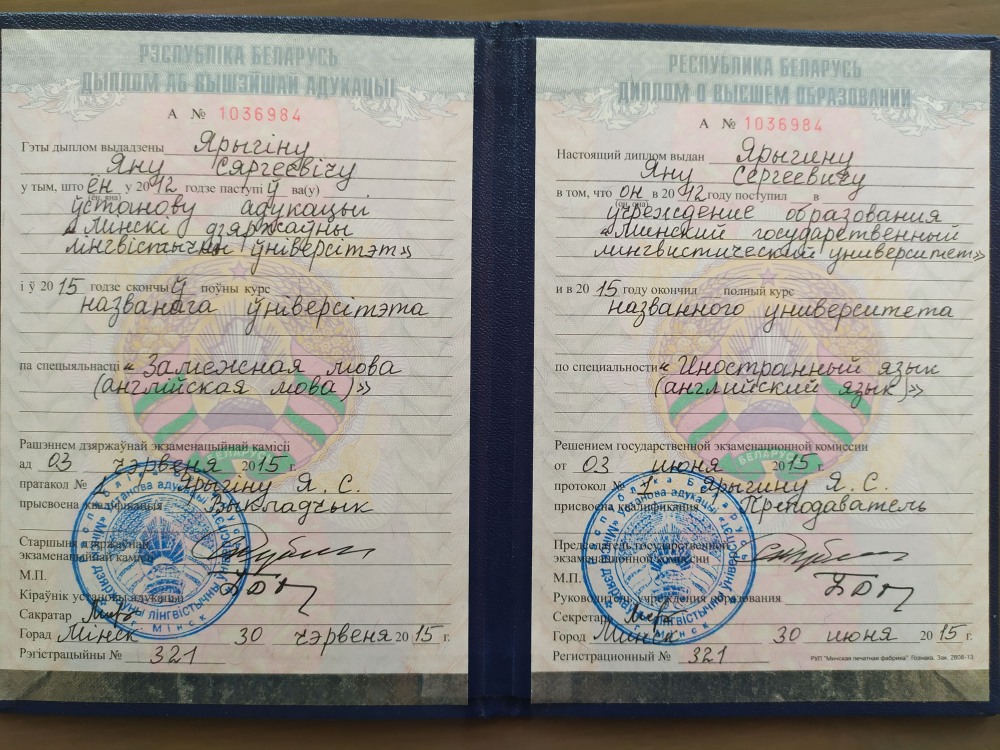 РЭСПУБЛІКА БЕЛАРУСЬ
ДЫПЛОМ АБ ВЫШЭЙШАЙ АДУКАЦЫІ
А № 1036984
Гэты дыплом выдадзены Ярыгіну
Яну Сяргеевічу
у тым, што ён у 2012 годзе паступіў ва(у)
(ён, яна)
ўстанову адукацыі
«Мінскі дзяржаўны
лінгвістычны ўніверсітэт»
і ў 2015 годзе скончыў поўны курс
названага ўніверсітэта
па спецыяльнасці «Замежная мова
(англійская мова)»
Рашэннем дзяржаўнай экзаменацыйнай камісіі
ад 03 чэрвеня 2015 г.
пратакол № 1 Ярыгіну Я. С.
прысвоена кваліфікацыя Выкладчык
Старшыня дзяржаўнай
экзаменацыйнай камісіі
М.П.
Кіраўнік установы адукацыі
Сакратар
Горад Мінск 30 чэрвеня 2015 г.
Рэгістрацыйны № 321
РЕСПУБЛИКА БЕЛАРУСЬ
ДИПЛОМ О ВЫСШЕМ ОБРАЗОВАНИИ
А № 1036984
Настоящий диплом выдан Ярыгину
Яну Сергеевичу
в том, что он в 2012 году поступил в
(он, она)
учреждение образования
«Минский государственный
лингвистический университет»
и в 2015 году окончил полный курс
названного университета
по специальности «Иностранный язык
(английский язык)»
БЕЛАРУСЬ
Решением государственной экзаменационной комиссии
от 03 июня 2015 г.
протокол № 1 Ярыгину Я. С.
присвоена квалификация Преподаватель
Председатель государственной
экзаменационной комиссии
М.П.
Руководитель учреждения образования
Секретарь
Город Минск 30 июня 2015 г.
Регистрационный № 321
РУП "Минская печатная фабрика" Гознака. Зак. 2608-13.